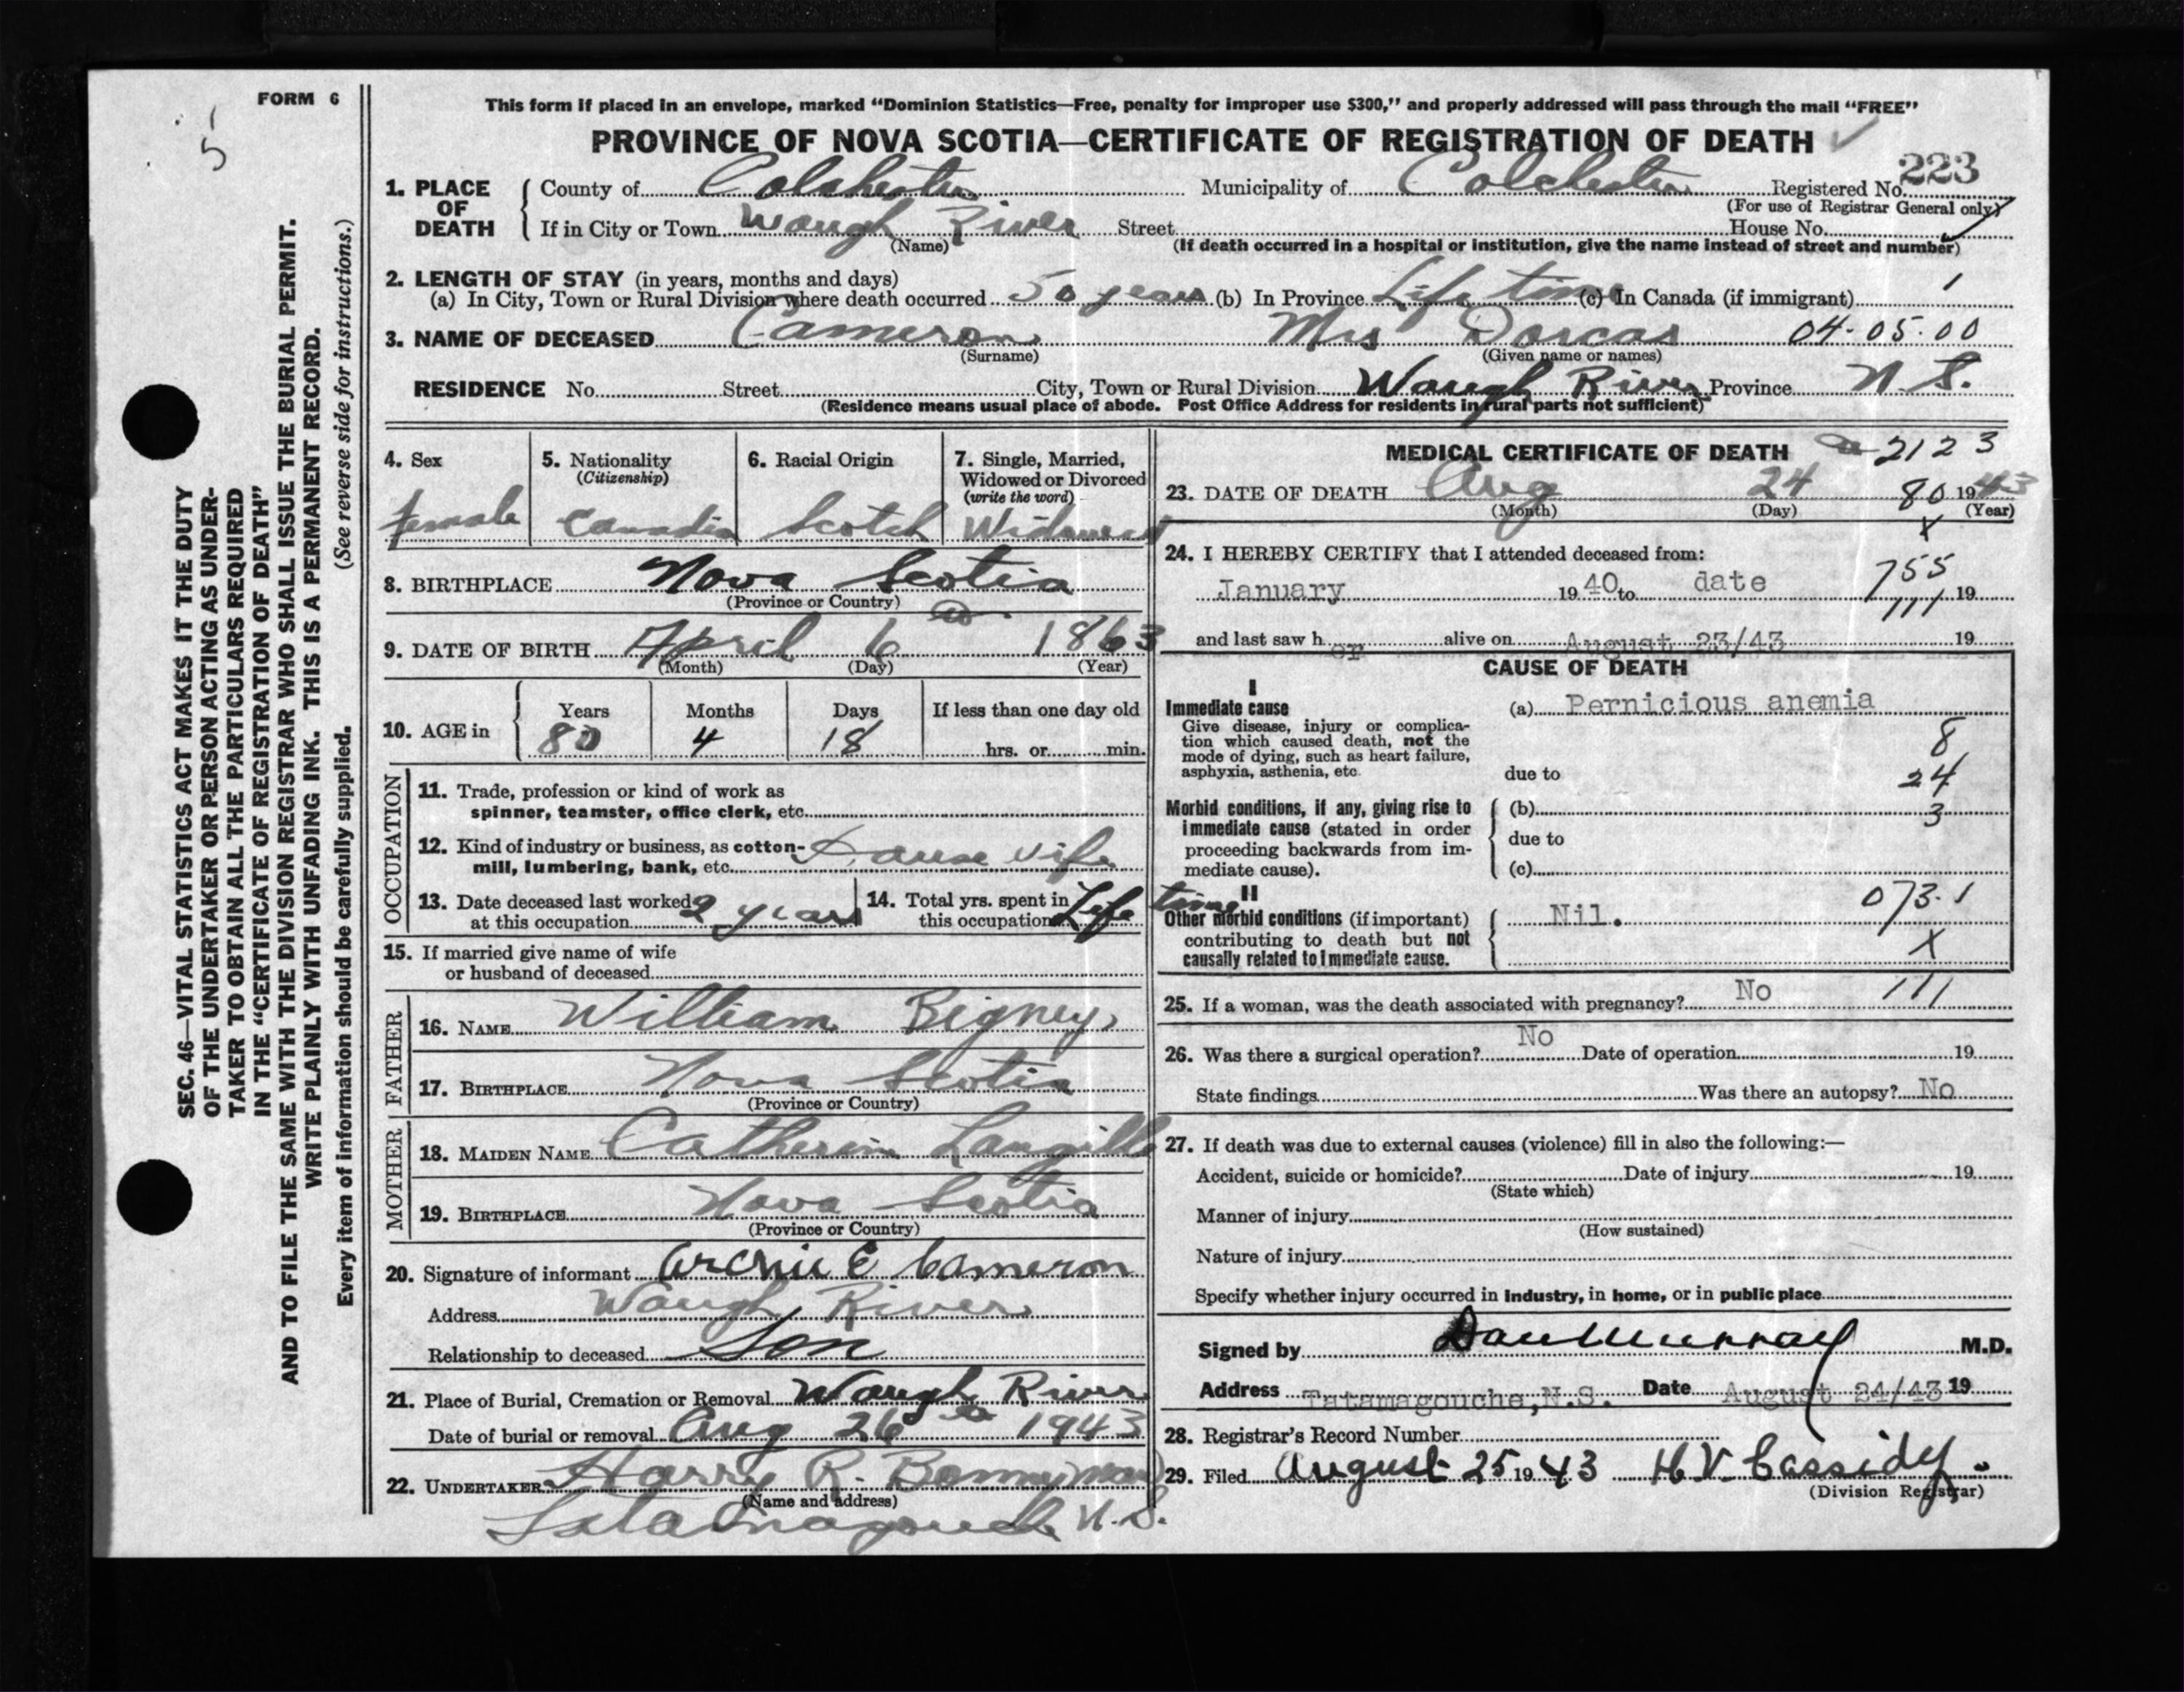 FORM 6
5
This form if placed in an envelope, marked “Dominion Statistics—Free, penalty for improper use $300,” and properly addressed will pass through the mail “FREE”
PROVINCE OF NOVA SCOTIA—CERTIFICATE OF REGISTRATION OF DEATH
223
1. PLACE OF DEATH County of Colchester Municipality of Colchester Registered No.
(For use of Registrar General only)
If in City or Town Waugh River Street House No.
(Name) (If death occurred in a hospital or institution, give the name instead of street and number)
2. LENGTH OF STAY (in years, months and days)
(a) In City, Town or Rural Division where death occurred 50 years (b) In Province Life time (c) In Canada (if immigrant) 1
3. NAME OF DECEASED Cameron Mrs Dorcas 04-05-00
(Surname) (Given name or names)
RESIDENCE No. Street City, Town or Rural Division Waugh River Province N.S.
(Residence means usual place of abode. Post Office Address for residents in rural parts not sufficient)
4. Sex 5. Nationality 6. Racial Origin 7. Single, Married,
(Citizenship) Widowed or Divorced
(write the word)
female Canadian Scotch Widowed
8. BIRTHPLACE Nova Scotia
(Province or Country)
9. DATE OF BIRTH April 6 1863
(Month) (Day) (Year)
Years Months Days If less than one day old
10. AGE in 80 4 18 hrs. or min.
OCCUPATION
11. Trade, profession or kind of work as
spinner, teamster, office clerk, etc.
12. Kind of industry or business, as cotton-
mill, lumbering, bank, etc. House wife
13. Date deceased last worked at this occupation 2 years 14. Total yrs. spent in this occupation Life time
15. If married give name of wife
or husband of deceased
FATHER
16. NAME William Bigney
17. BIRTHPLACE Nova Scotia
(Province or Country)
MOTHER
18. MAIDEN NAME Catherine Langille
19. BIRTHPLACE Nova Scotia
(Province or Country)
20. Signature of informant Archie E Cameron
Address Waugh River
Relationship to deceased Son
21. Place of Burial, Cremation or Removal Waugh River
Date of burial or removal Aug 26 1943
22. UNDERTAKER Harry R. Bonnyman
(Name and address)
Tatamagouche N.S.
MEDICAL CERTIFICATE OF DEATH 2123
23. DATE OF DEATH Aug 24 80 1943
(Month) (Day) X (Year)
24. I HEREBY CERTIFY that I attended deceased from:
755
January 1940 to date 19
111
and last saw her alive on August 23/43 19
CAUSE OF DEATH
I
Immediate cause (a) Pernicious anemia
Give disease, injury or complica-
tion which caused death, not the 8
mode of dying, such as heart failure,
asphyxia, asthenia, etc. due to 24
Morbid conditions, if any, giving rise to (b) 3
immediate cause (stated in order
proceeding backwards from im- due to
mediate cause). (c)
II 073.1
Other morbid conditions (if important) Nil.
contributing to death but not X
causally related to immediate cause.
25. If a woman, was the death associated with pregnancy? No 111
26. Was there a surgical operation? No Date of operation 19
State findings Was there an autopsy? No
27. If death was due to external causes (violence) fill in also the following:—
Accident, suicide or homicide? Date of injury 19
(State which)
Manner of injury
(How sustained)
Nature of injury
Specify whether injury occurred in industry, in home, or in public place
Signed by Dan Murray M.D.
Address Tatamagouche, N.S. Date August 24/43 19
28. Registrar's Record Number
29. Filed August 25 1943 H.V. Cassidy.
(Division Registrar)
SEC. 46—VITAL STATISTICS ACT MAKES IT THE DUTY
OF THE UNDERTAKER OR PERSON ACTING AS UNDER-
TAKER TO OBTAIN ALL THE PARTICULARS REQUIRED
IN THE “CERTIFICATE OF REGISTRATION OF DEATH”
AND TO FILE THE SAME WITH THE DIVISION REGISTRAR WHO SHALL ISSUE THE BURIAL PERMIT.
WRITE PLAINLY WITH UNFADING INK. THIS IS A PERMANENT RECORD.
Every item of information should be carefully supplied. (See reverse side for instructions.)